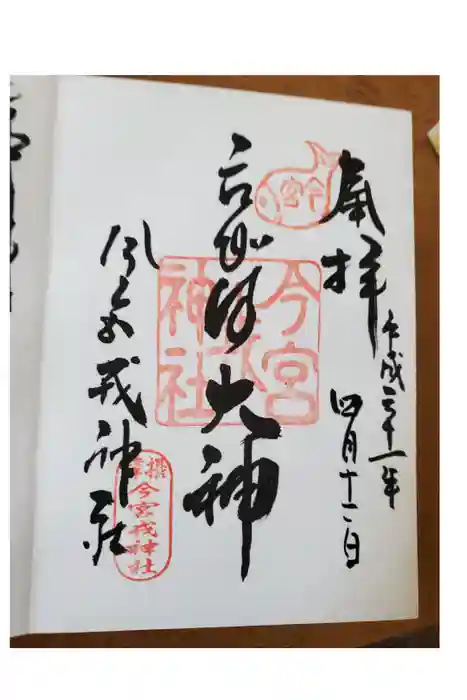 奉拝
平成三十一年
四月十二日
今宮
ゑびす大神
今宮戎神社
今宮戎神社
今宮戎神社